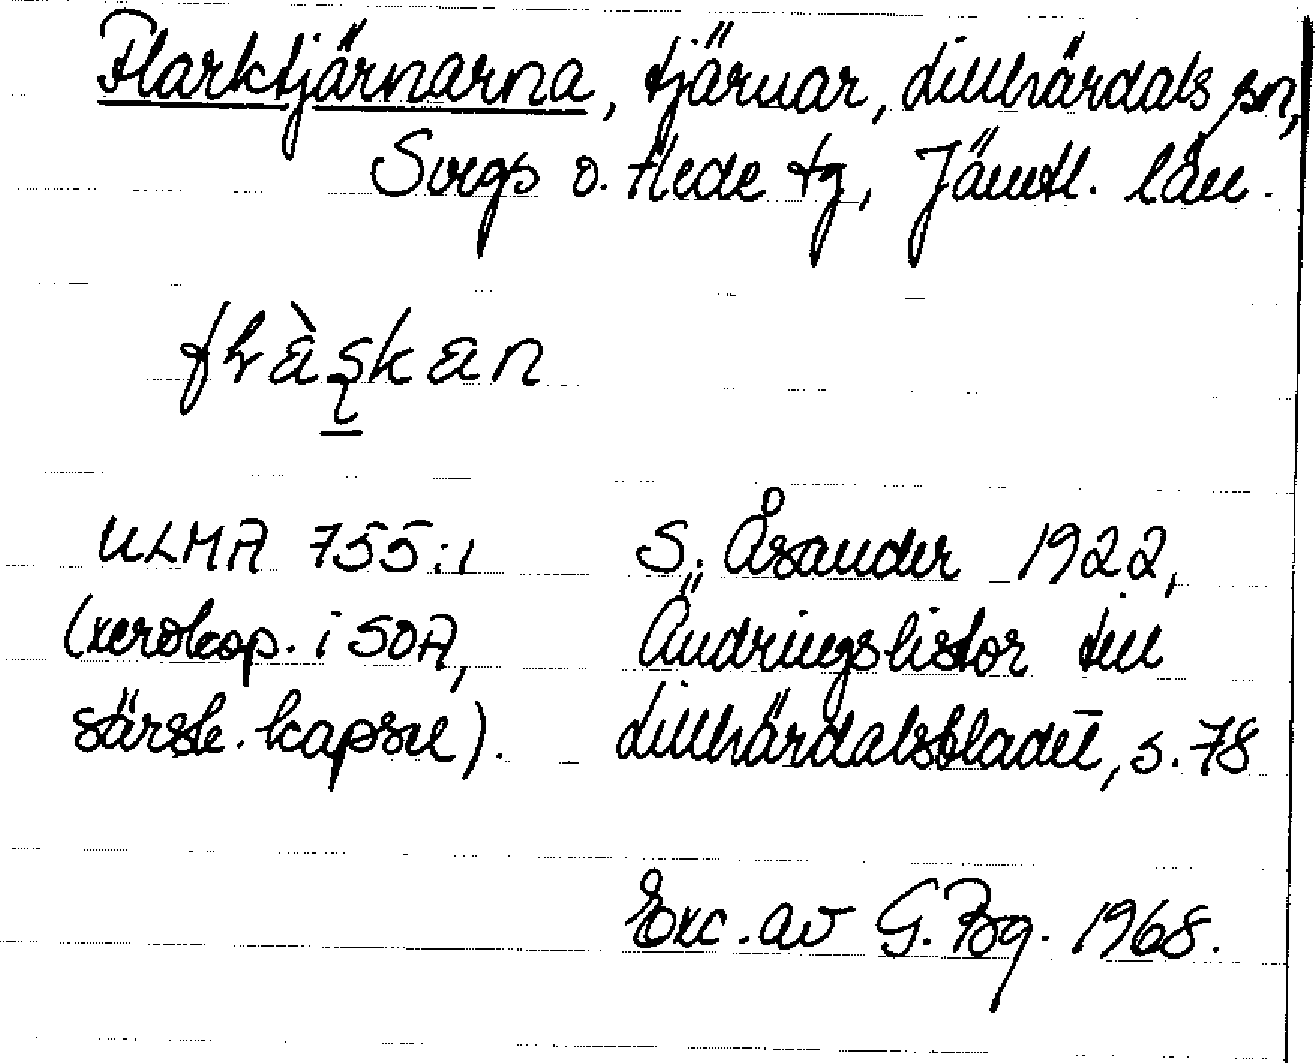 Flarktjärnarna, tjärnar, Lillhärdals sn,
Svegs o. Hede tg, Jämtl. län.
ULMA 755:1
S. Åsander 1922,
(xerokop. i SOA,
Ändringslistor till
särsk. kapsel).
Lillhärdalsbladet, s. 78
Exc. av G. Bg. 1968.